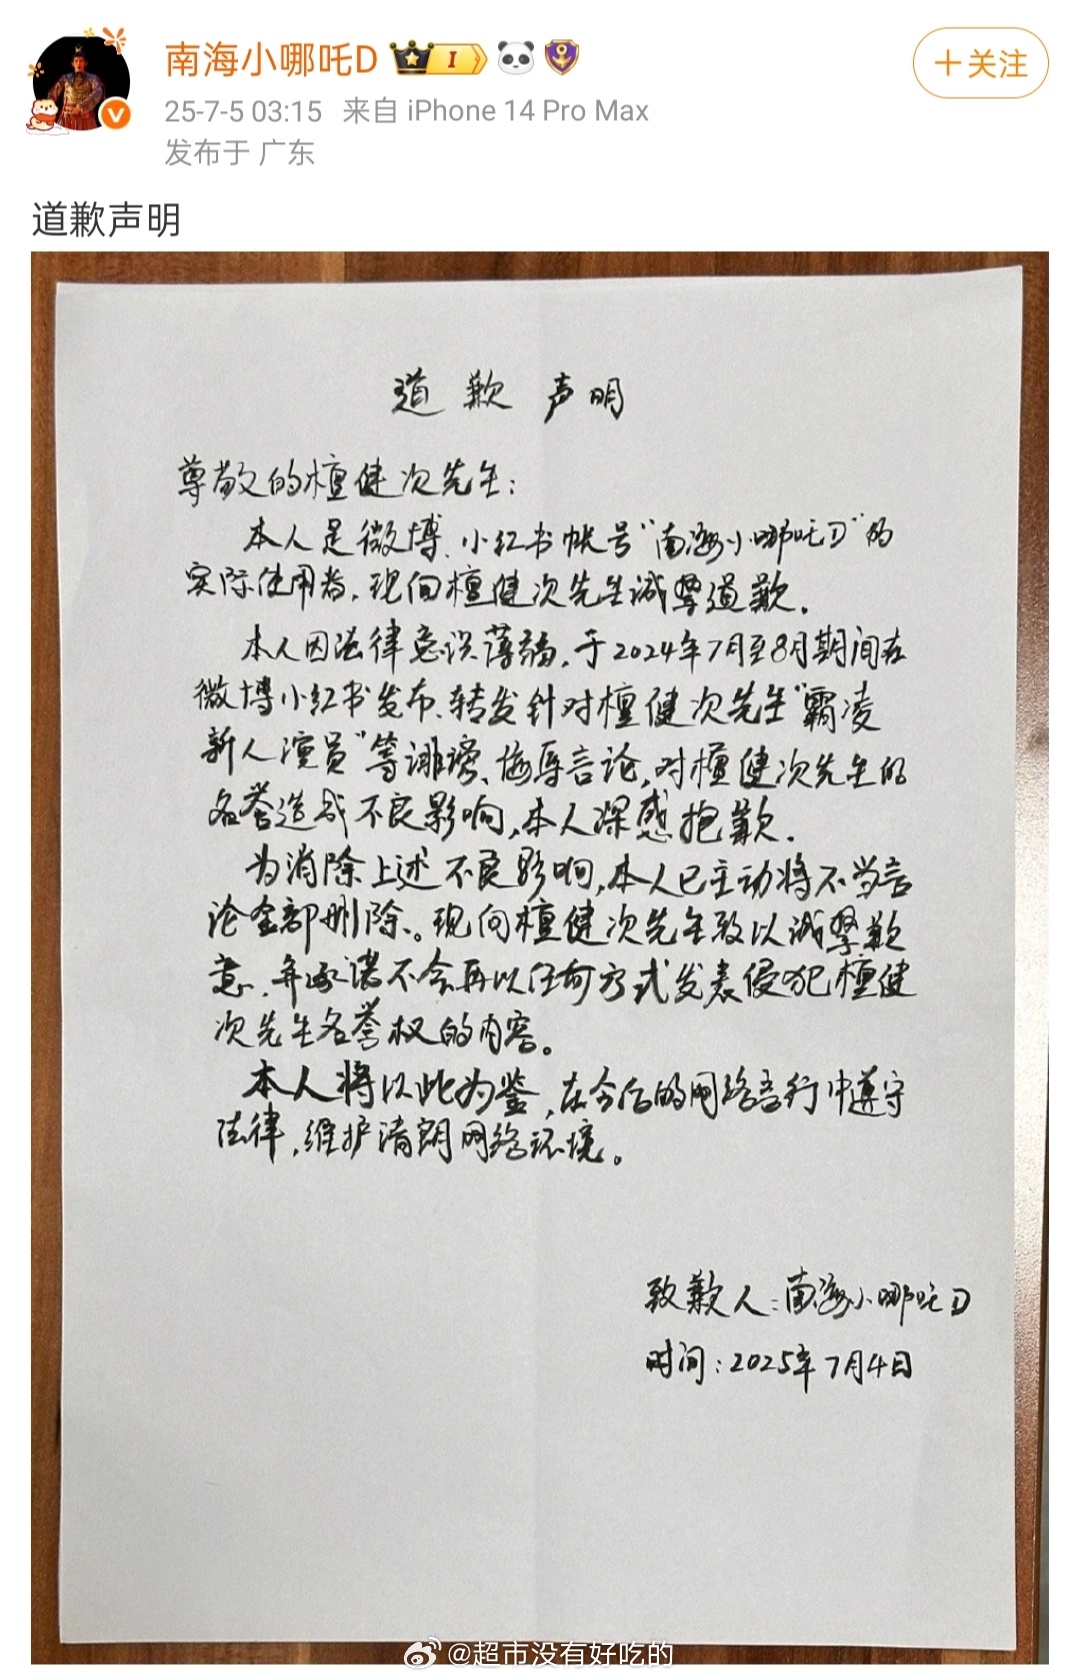 南海小哪吒D I
25-7-5 03:15 来自 iPhone 14 Pro Max
发布于 广东
+关注
道歉声明
道歉声明
尊敬的檀健次先生：
本人是微博、小红书帐号“南海小哪吒D”的
实际使用者，现向檀健次先生诚挚道歉。
本人因法律意识薄弱，于2024年7月至8月期间在
微博小红书发布、转发针对檀健次先生“霸凌
新人演员”等诽谤、侮辱言论，对檀健次先生的
名誉造成不良影响，本人深感抱歉。
为消除上述不良影响，本人已主动将不当言
论全部删除。现向檀健次先生致以诚挚歉
意，并承诺不会再以任何方式发表侵犯檀健
次先生名誉权的内容。
本人将以此为鉴，在今后的网络言行中遵守
法律，维护清朗网络环境。
致歉人：南海小哪吒D
时间：2025年7月4日
@超市没有好吃的